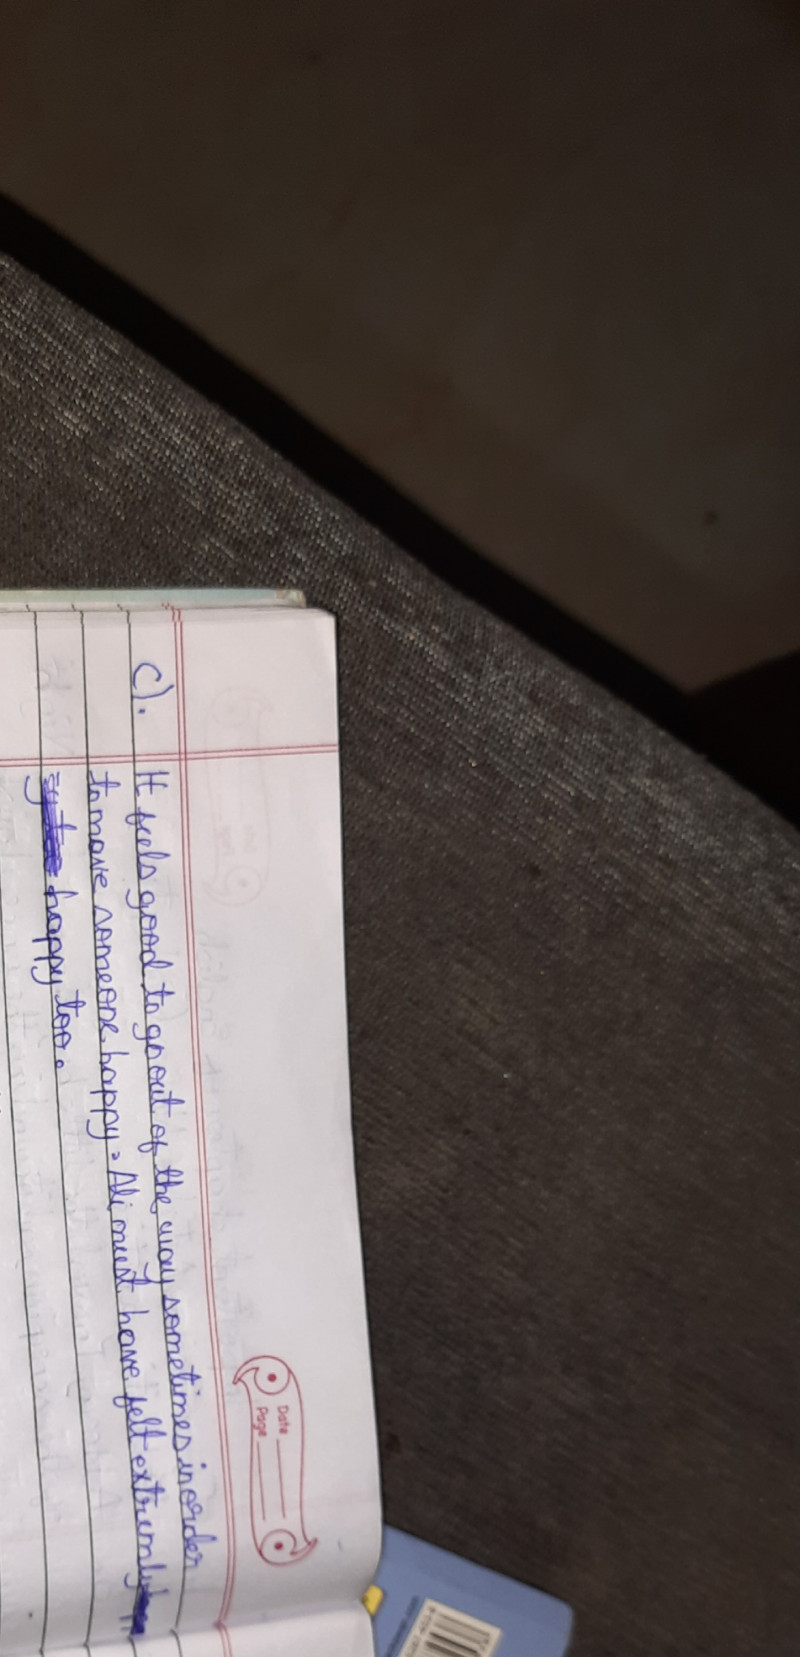 Date
Page
c). It feels good to go out of the way sometimes in order
to make someone happy. Ali must have felt extremly
happy too.